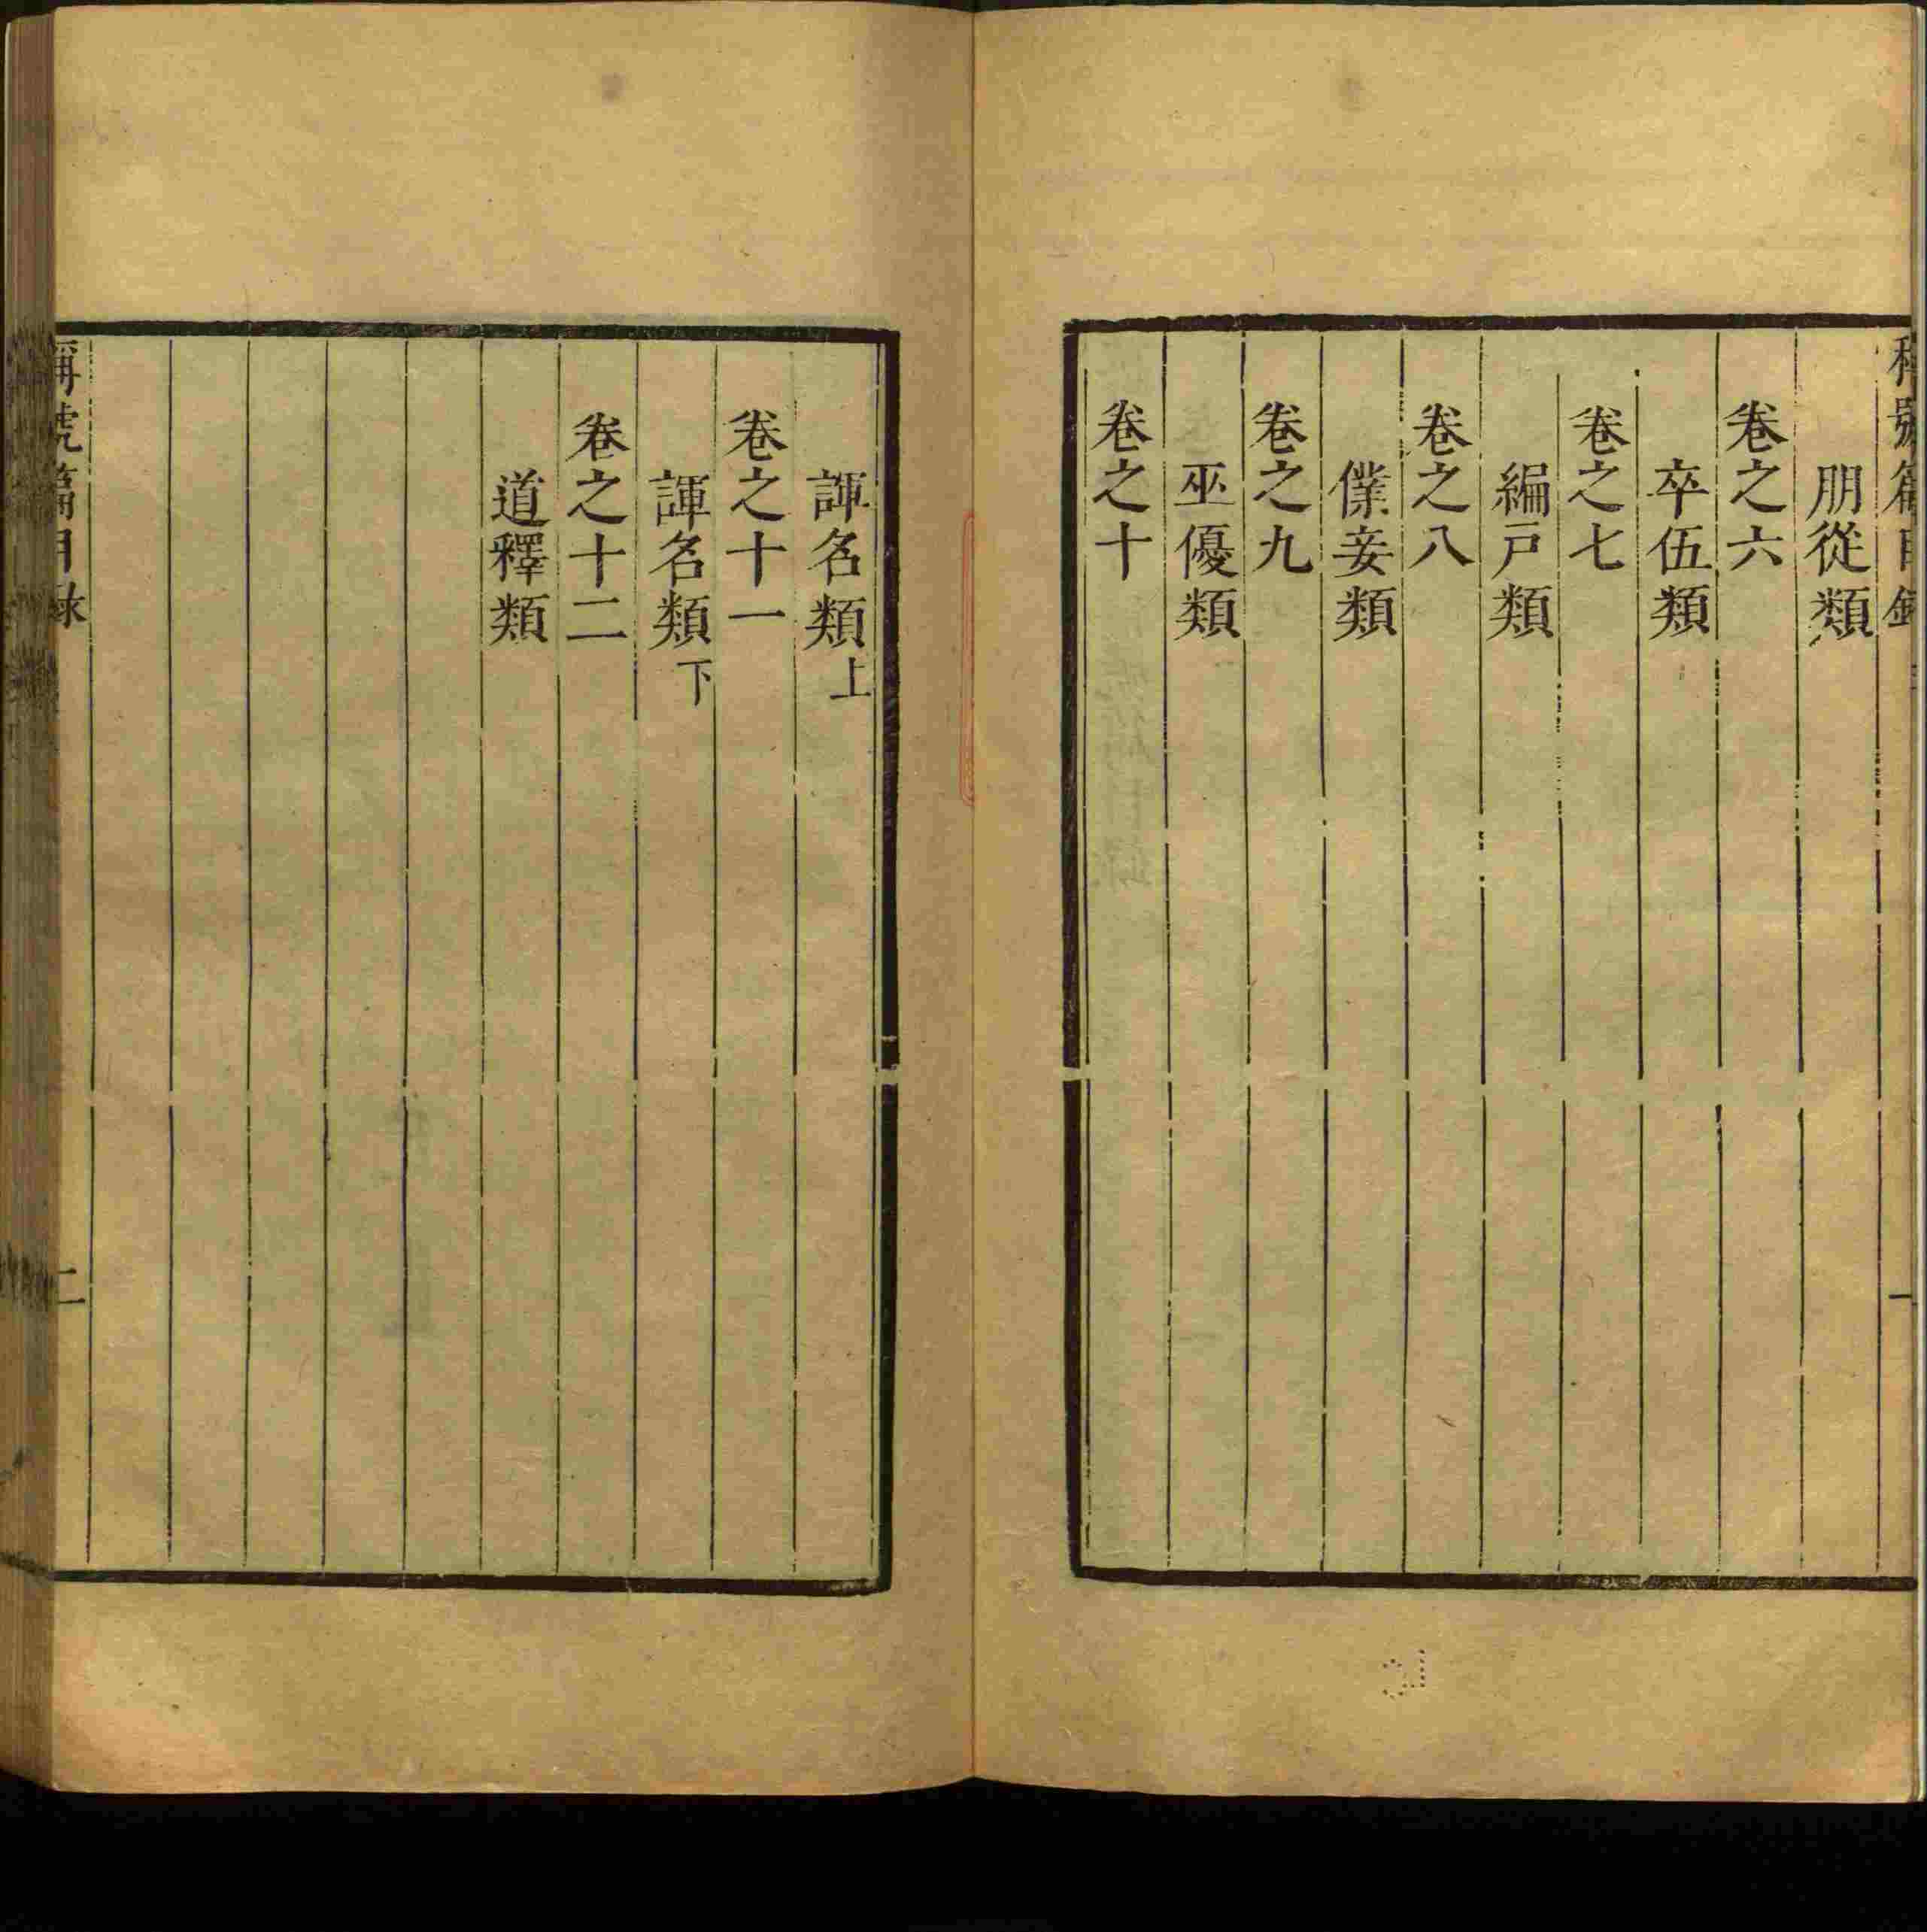 稱號篇目錄 一
朋從類
卷之六
卒伍類
卷之七
編戸類
卷之八
僕妾類
卷之九
巫優類
卷之十
諢名類上
卷之十一
諢名類下
卷之十二
道釋類
稱號篇目錄 二